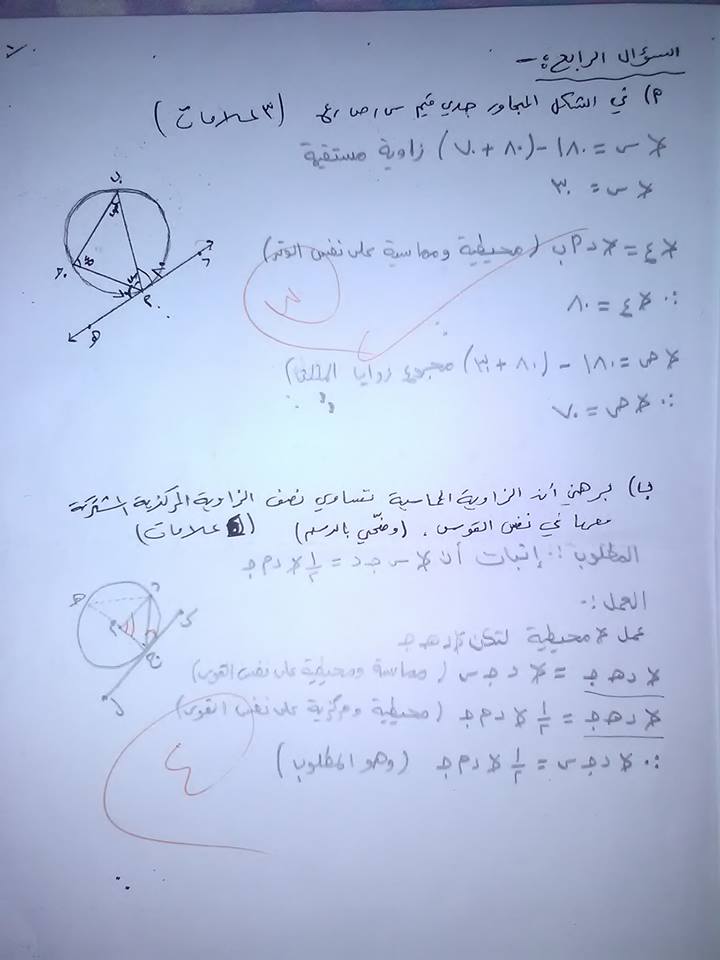 السؤال الرابع :-
م) في الشكل المجاور جدي قيم س ، ص ، ع (٣ علامات)
∠ س = ١٨٠ - (٨٠ + ٧٠) زاوية مستقيمة
∠ س = ٣٠
∠ ع = ∠ د م ب (محيطية ومماسية على نفس الوتر)
∴ ∠ ع = ٨٠
∠ ص = ١٨٠ - (٨٠ + ٣٠) مجموع زوايا المثلث
∴ ∠ ص = ٧٠
٣
ب) برهني أن الزاوية المماسية تساوي نصف الزاوية المركزية المشتركة
معها في نفس القوس . (وضّحي بالرسم) ( علامات)
المطلوب : إثبات أن ∠ س ج د = ١/٢ ∠ د م ج
العمل :
عمل ∠ محيطية لتكن ∠ د هـ ج
∠ د هـ ج = ∠ د ج س (مماسة ومحيطية على نفس القوس)
∠ د هـ ج = ١/٢ ∠ د م ج (محيطية ومركزية على نفس القوس)
∴ ∠ د ج س = ١/٢ ∠ د م ج (وهو المطلوب)
٤